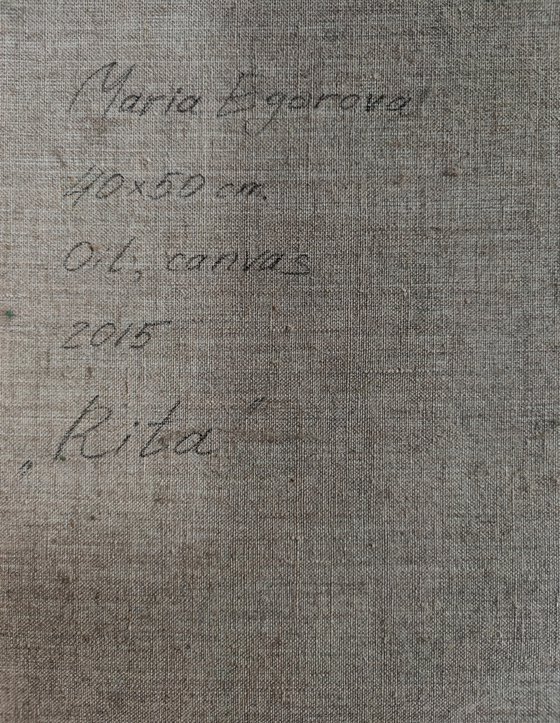 Maria Egorova
40x50 cm.
Oil, canvas
2015
„Rita"